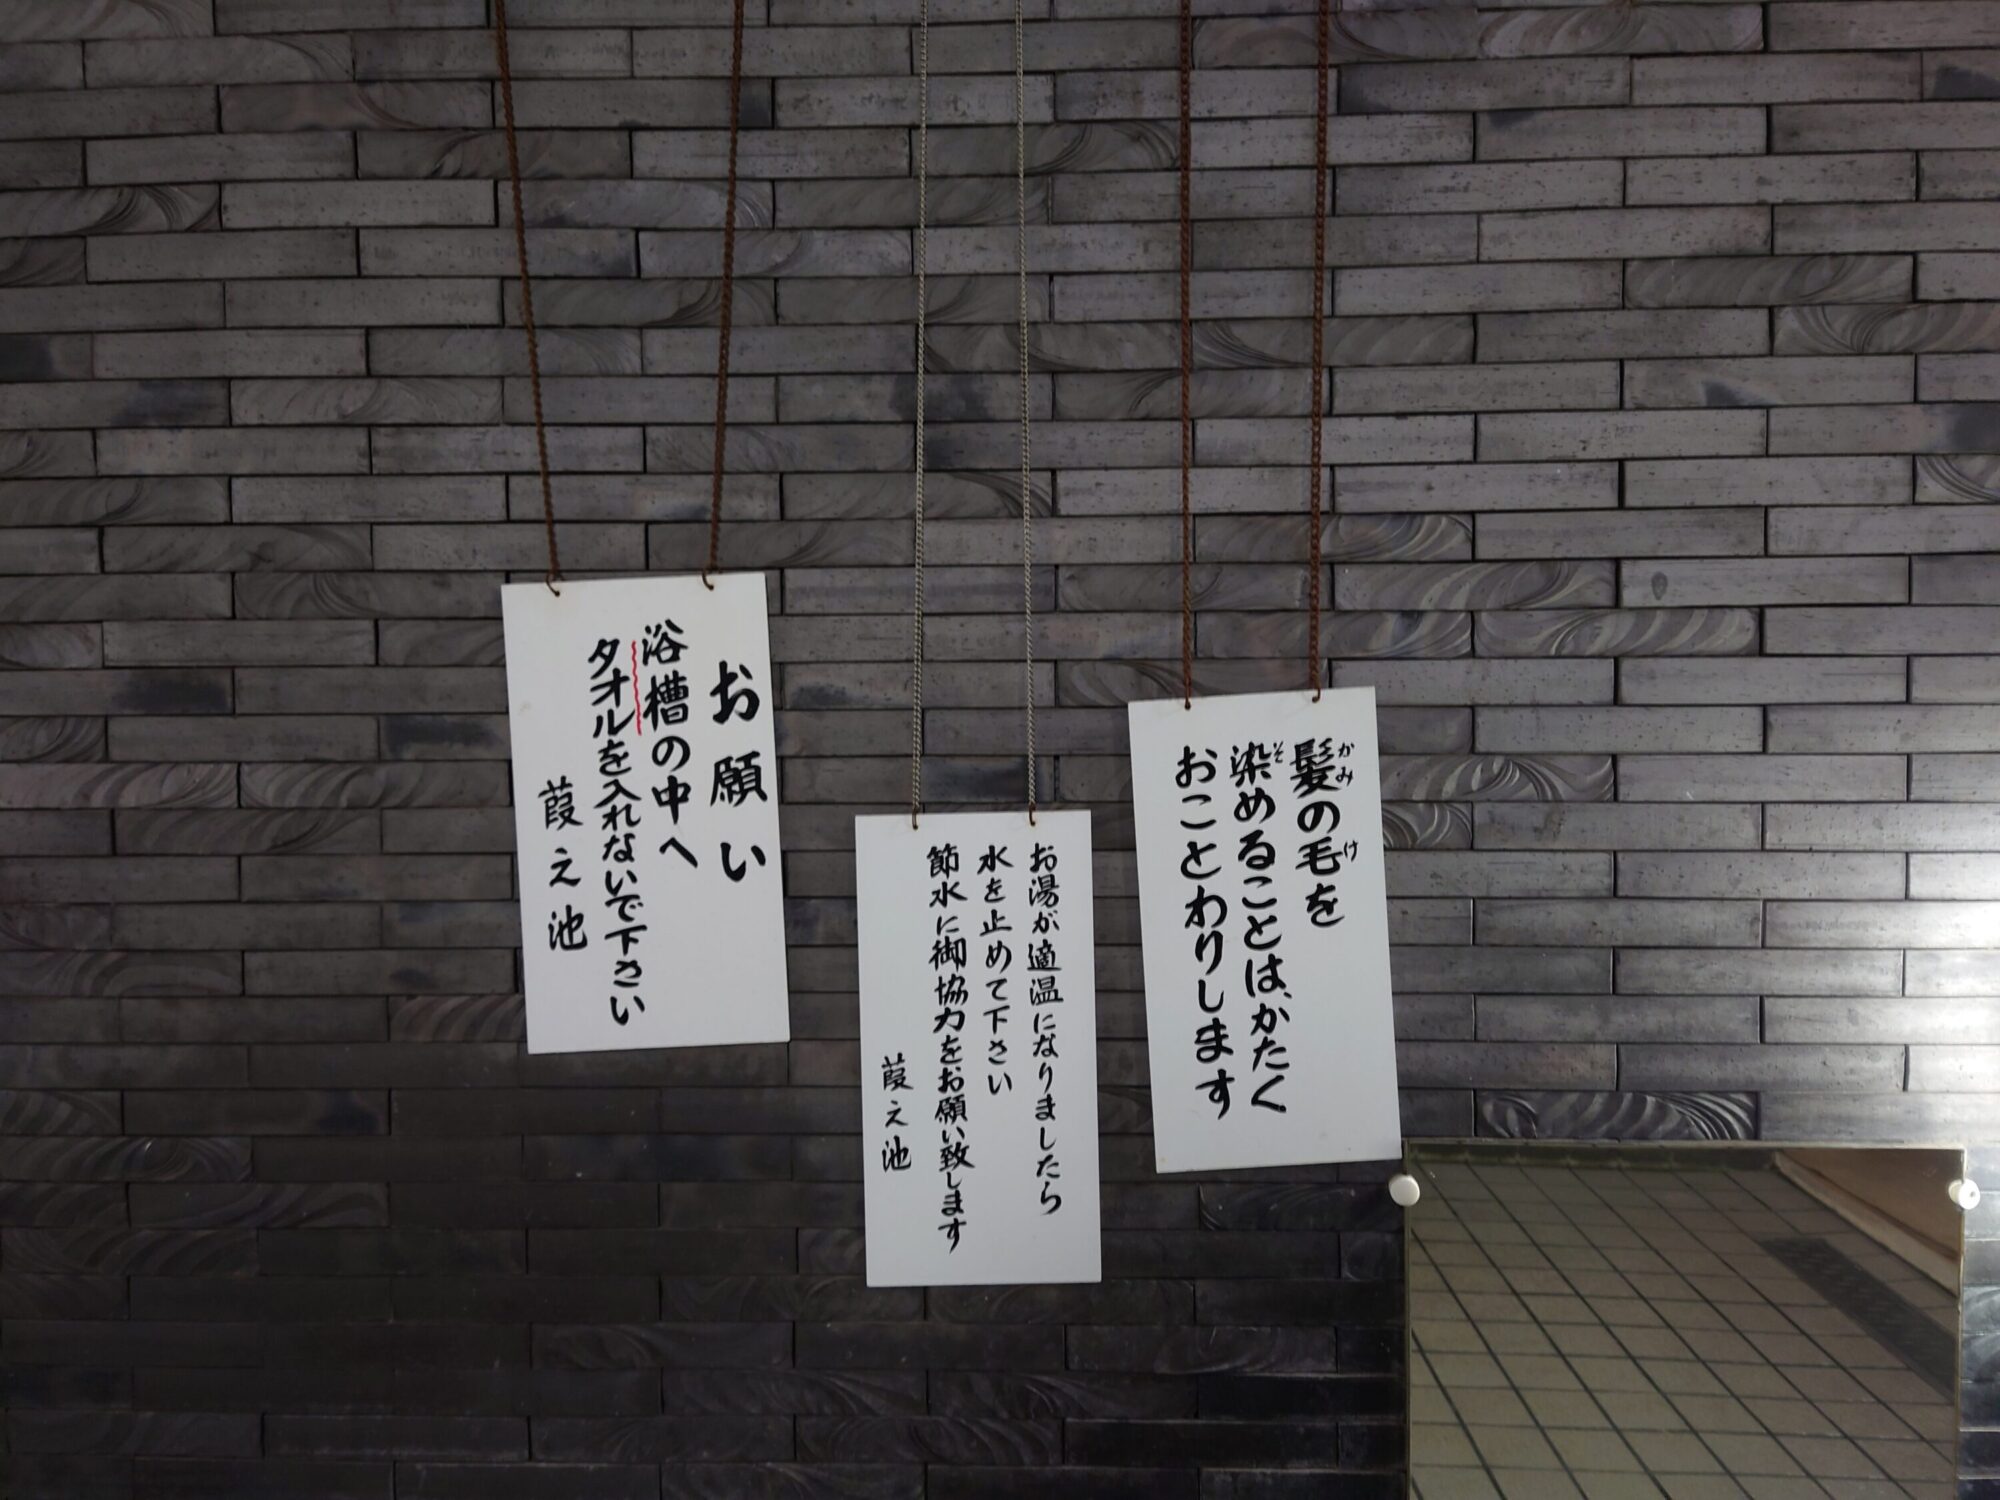 お願い
浴槽の中へ
タオルを入れないで下さい
葭之池
お湯が適温になりましたら
水を止めて下さい
節水に御協力をお願い致します
葭之池
髪の毛を
かみ け
染めることは、かたく
そ
おことわりします